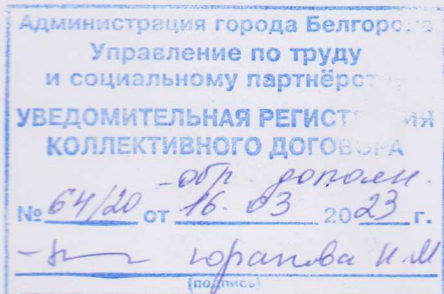 Администрация города Белгорода
Управление по труду
и социальному партнёрству
УВЕДОМИТЕЛЬНАЯ РЕГИСТРАЦИЯ
КОЛЛЕКТИВНОГО ДОГОВОРА
дополн.
№ 64/20 от 16. 03 2023 г.
И.И
(подпись)